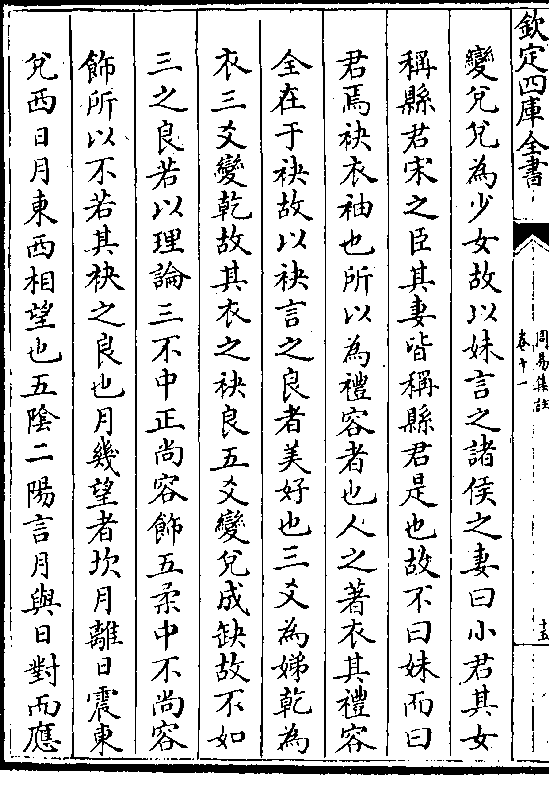 欽定四庫全書
周易集註
卷十一
十五
變兌兌為少女故以妹言之諸侯之妻曰小君其女
稱縣君宋之臣其妻皆稱縣君是也故不曰妹而曰
君焉袂衣袖也所以為禮容者也人之著衣其禮容
全在于袂故以袂言之良者美好也三爻為娣乾為
衣三爻變乾故其衣之袂良五爻變兌成缺故不如
三之良若以理論三不中正尚容飾五柔中不尚容
飾所以不若其袂之良也月幾望者坎月離日震東
兌西日月東西相望也五陰二陽言月與日對而應